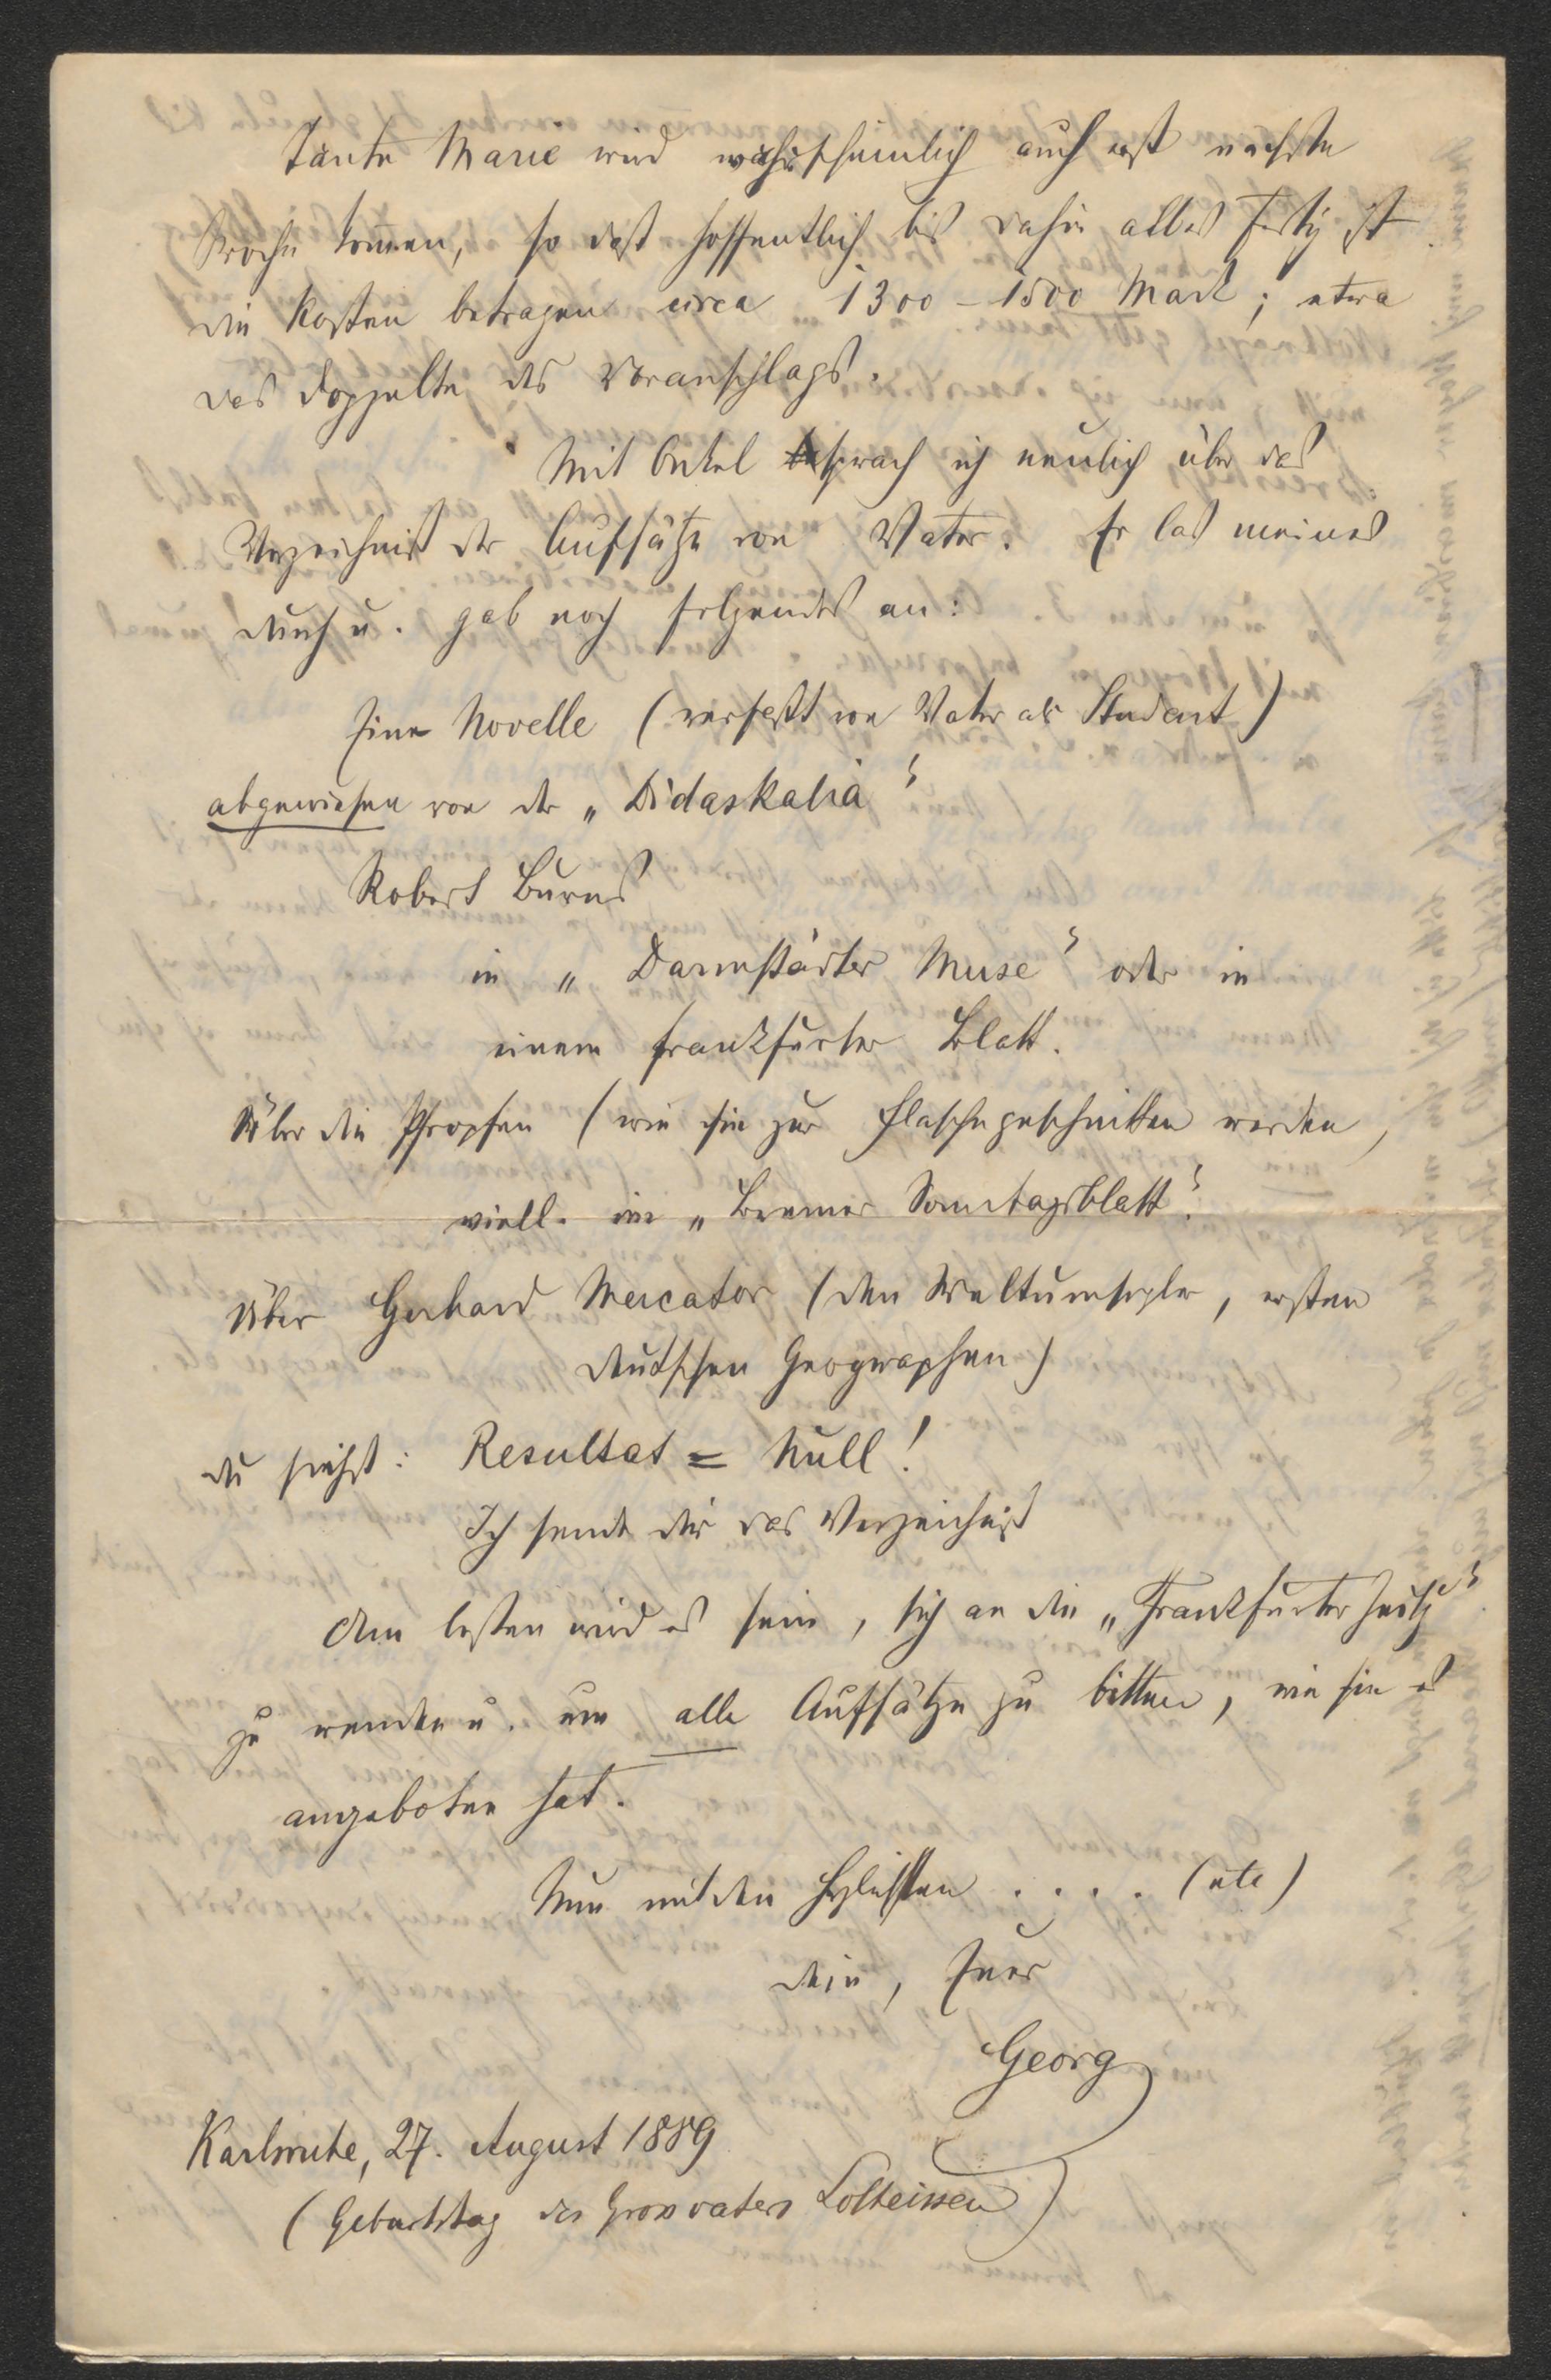 Tante Marie wird wahrscheinlich auch erst nächste
Woche kommen, so daß hoffentlich bis dahin alles fertig ist
die Kosten betragen circa 1300 – 1500 Mark; etwa
das doppelte des Voranschlags.
Mit Onkel sprach ich neulich über das
Verzeichniß der Aufsätze von Vater. Er las meines
durch u. gab noch folgendes an:
Eine Novelle (verfaßt von Vater als Student)
abgewiesen von der „Didaskalia“
Robert Burns
in „Darmstädter Muse“ oder in
einem Frankfurter Blatt.
Über die Pfropfen (wie sie zur Flasche geschnitten werden,
viell. im „Bremer Sonntagsblatt“.
Über Gerhard Mercator (den Weltumsegler, ersten
deutschen Geographen)
du siehst: Resultat = Null!
Ich sende dir das Verzeichniß
Am besten wird es sein, sich an die „Frankfurter Zeitg“
zu wenden u. um alle Aufsätze zu bitten, wie sie es
angeboten hat.
Nun mit den . . . . (etc)
dein, Euer
Georg
Karlsruhe, 27. August 1889
(Geburtstag des Grossvaters Lotheissen)